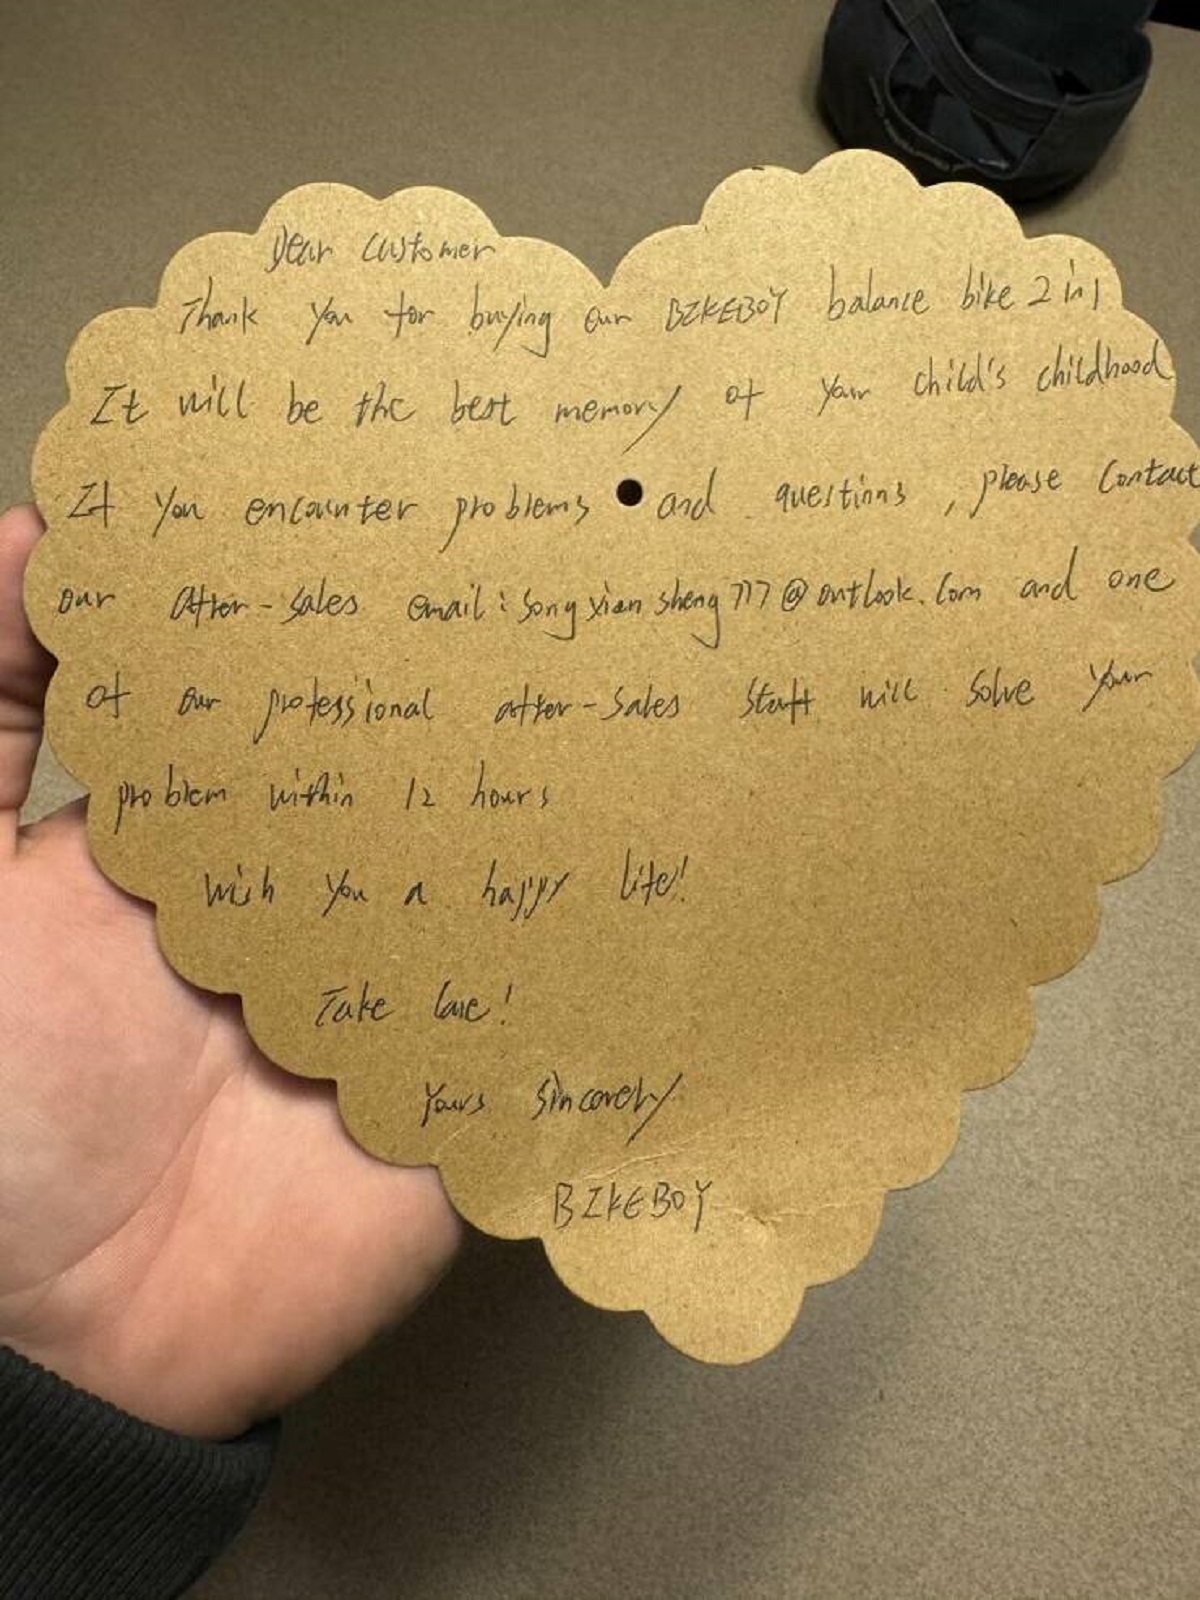 Dear Customer
Thank you for buying our BIKEBOY balance bike 2 in 1
It will be the best memory of your child's childhood
If you encounter problems and questions , please contact
our after-sales email: songxiansheng777@outlook.com and one
of our professional after-sales staff will solve your
problem within 12 hours
Wish you a happy life!
Take Care!
Yours sincerely
BIKEBOY